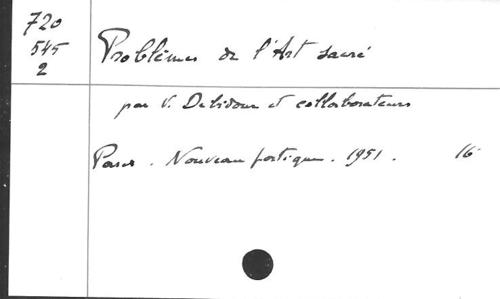 720
545
2
Problèmes de l'Art sacré
par V. Debidour et collaborateurs
Paris. Nouveau portique. 1951. 16